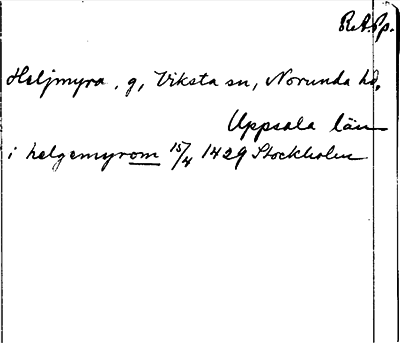 R.A.Pp.
Heljmyra, g, Viksta sn, Norunda hd,
Uppsala län
i helgemyrom 15/4 1429 Stockholm